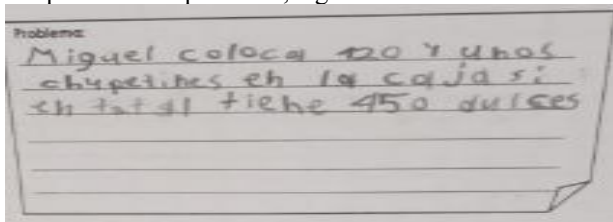 Problema:
Miguel coloca 120 y unos
chupetines en la caja si
en total tiene 450 dulces